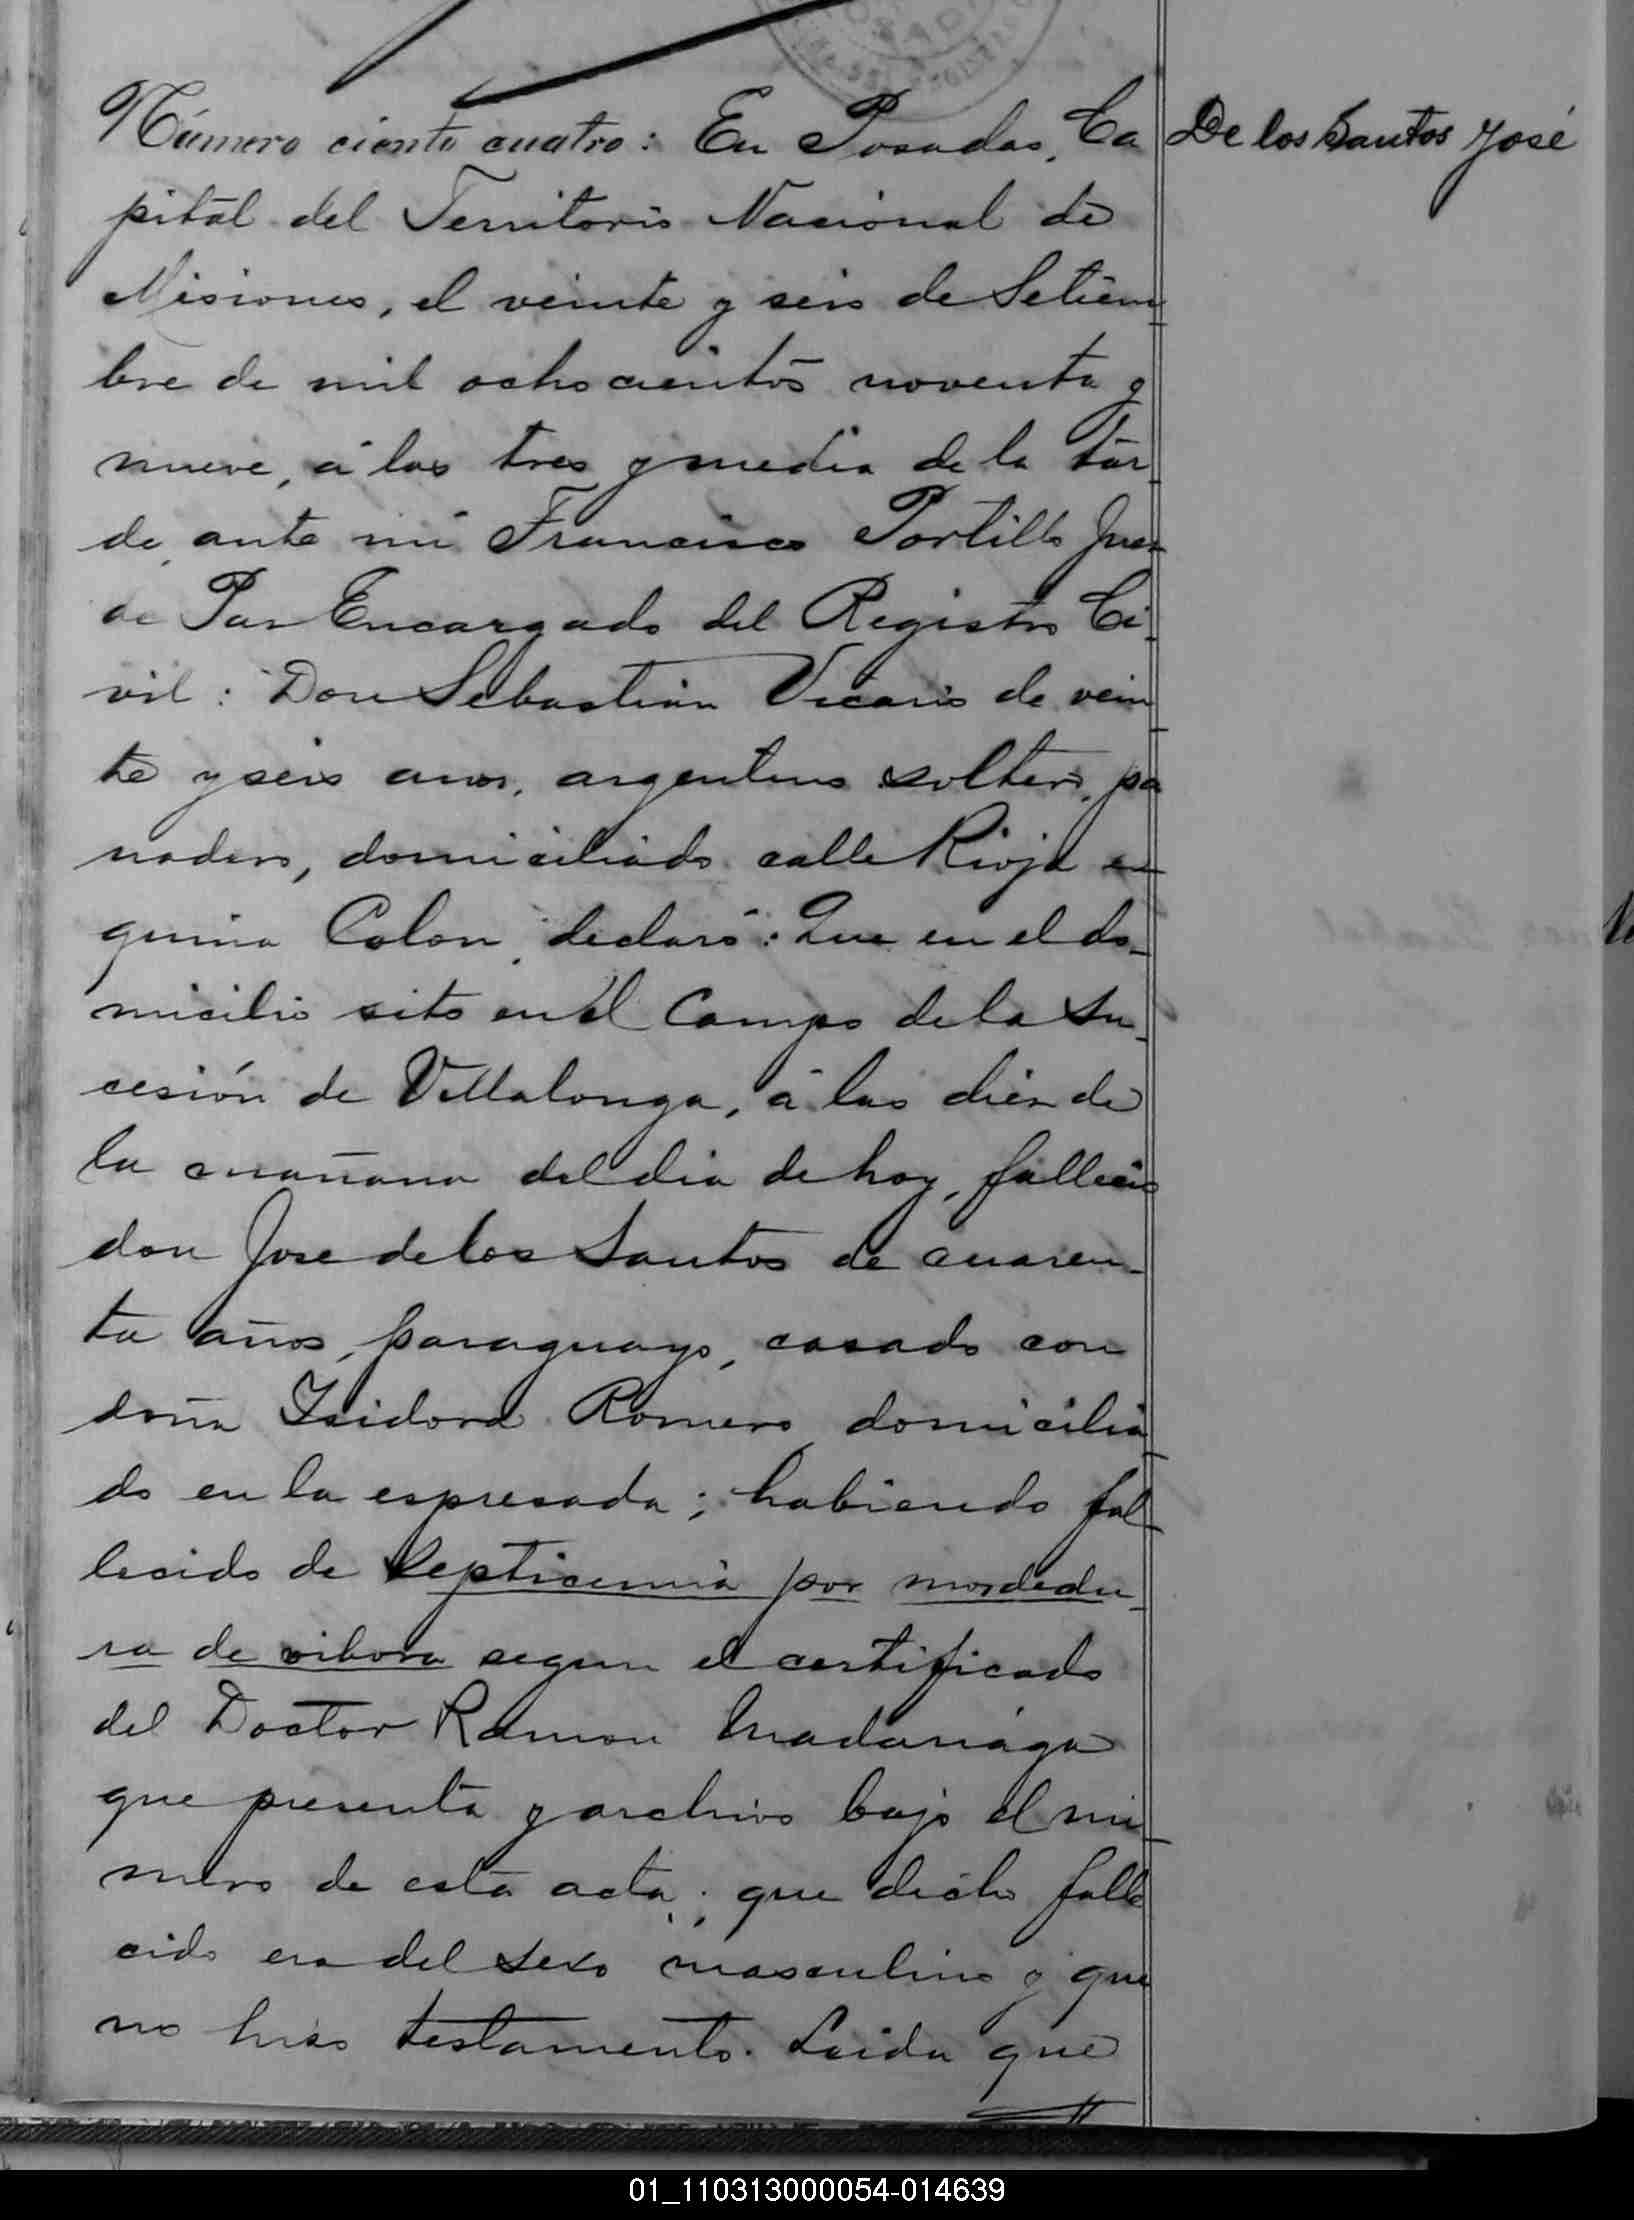 Número ciento cuatro: En Posadas, Ca
De los Santos José
pital del Territorio Nacional de
Misiones, el veinte y seis de Setiem
bre de mil ochocientos noventa y
nueve, á las tres y media de la tar
de, ante mi Francisco Portillo Juez
de Paz Encargado del Registro Ci-
vil: Don Sebastián Vicario de vein
te y seis anos, argentino soltero, pa
nadero, domiciliado calle Rioja es
quina Colon, declaró: Que en el do-
micilio sito en el Campo de la Su-
cesión de Villalonga, á las diez de
la mañana del dia de hoy, falleció
don Jose de los Santos de cuaren-
ta años, paraguayo, casado con
doña Isidora Romero, domicilia
do en la espresada; habiendo fal-
lecido de septicemia por mordedu-
ra de vibora segun el certificado
del Doctor Ramon Madariaga
que presenta y archivo bajo el nú
mero de esta acta; que dicho falle
cido era del sexo masculino y que
no hizo testamento. Leida que
01_110313000054-014639